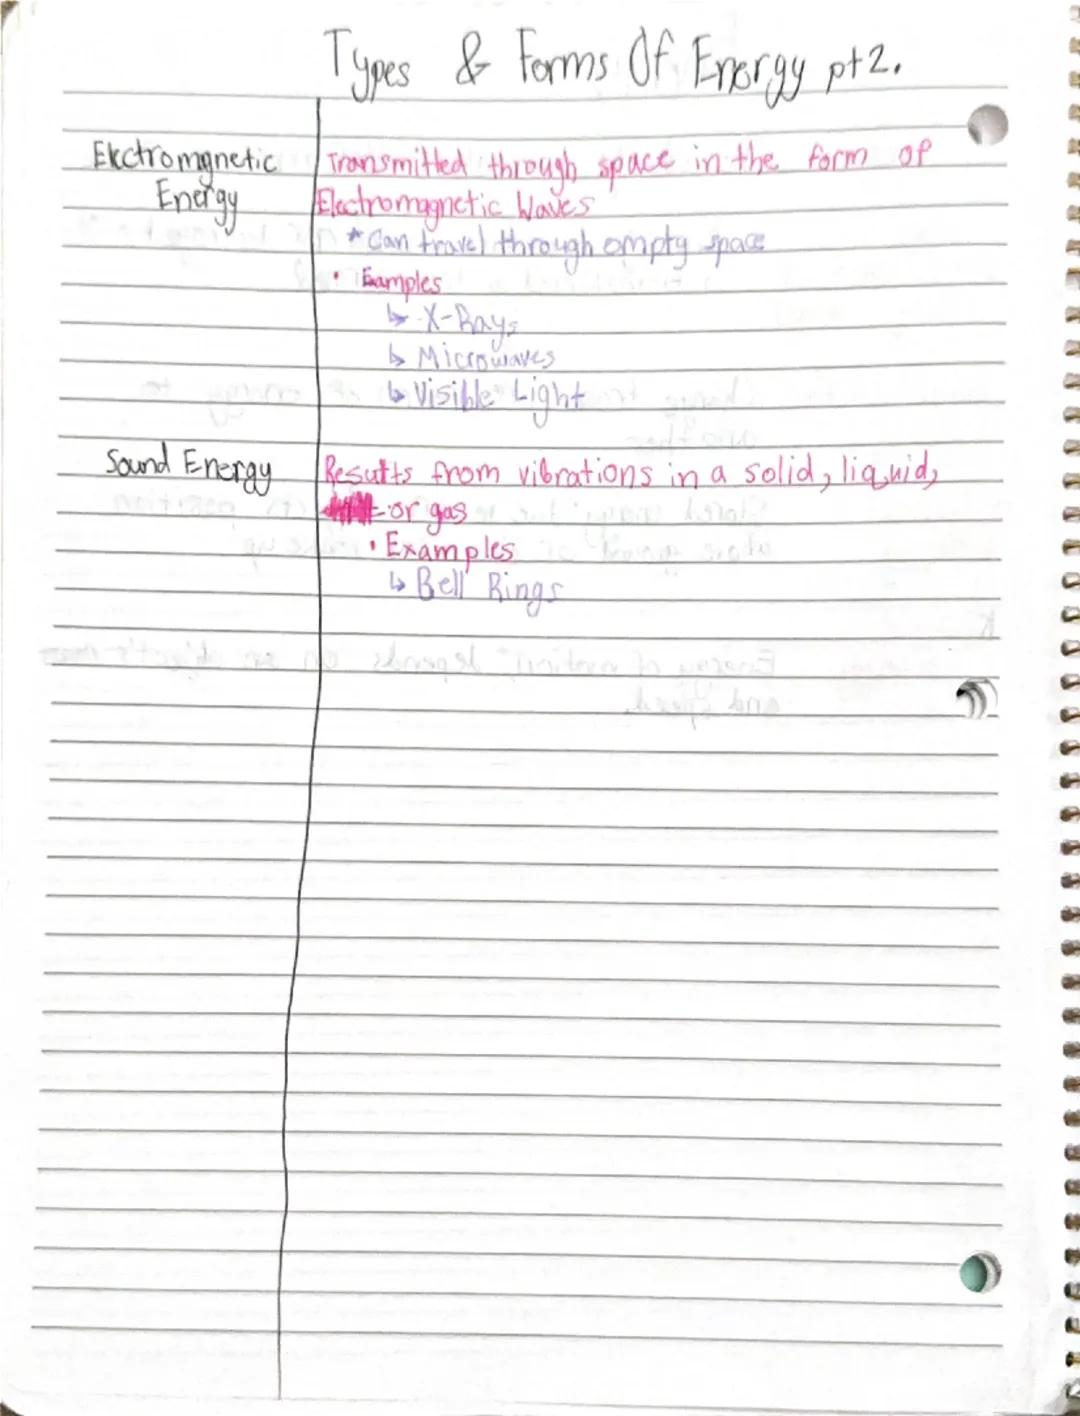 Types & Forms Of Energy pt2.
Electromgnetic
Energy
Transmitted through space in the form of
Electromagnetic Waves
* Can travel through empty space
• Examples
↳ X-Rays
↳ Microwaves
↳ Visible Light
Sound Energy
Results from vibrations in a solid, liquid,
or gas
• Examples
↳ Bell Rings